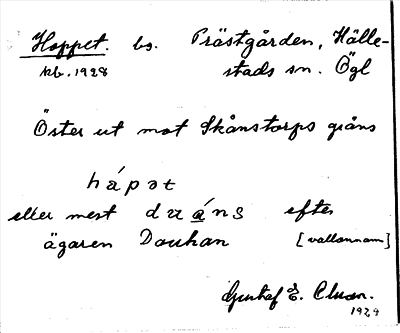 Hoppet. bs. Prästgården, Hälle-
kb. 1928 stads sn. Ögl
Öster ut mot Skånstorps gräns
hápət
eller mest duáns efter
ägaren Douhan [vallonnamn]
Gustaf E. Cluson.
1929